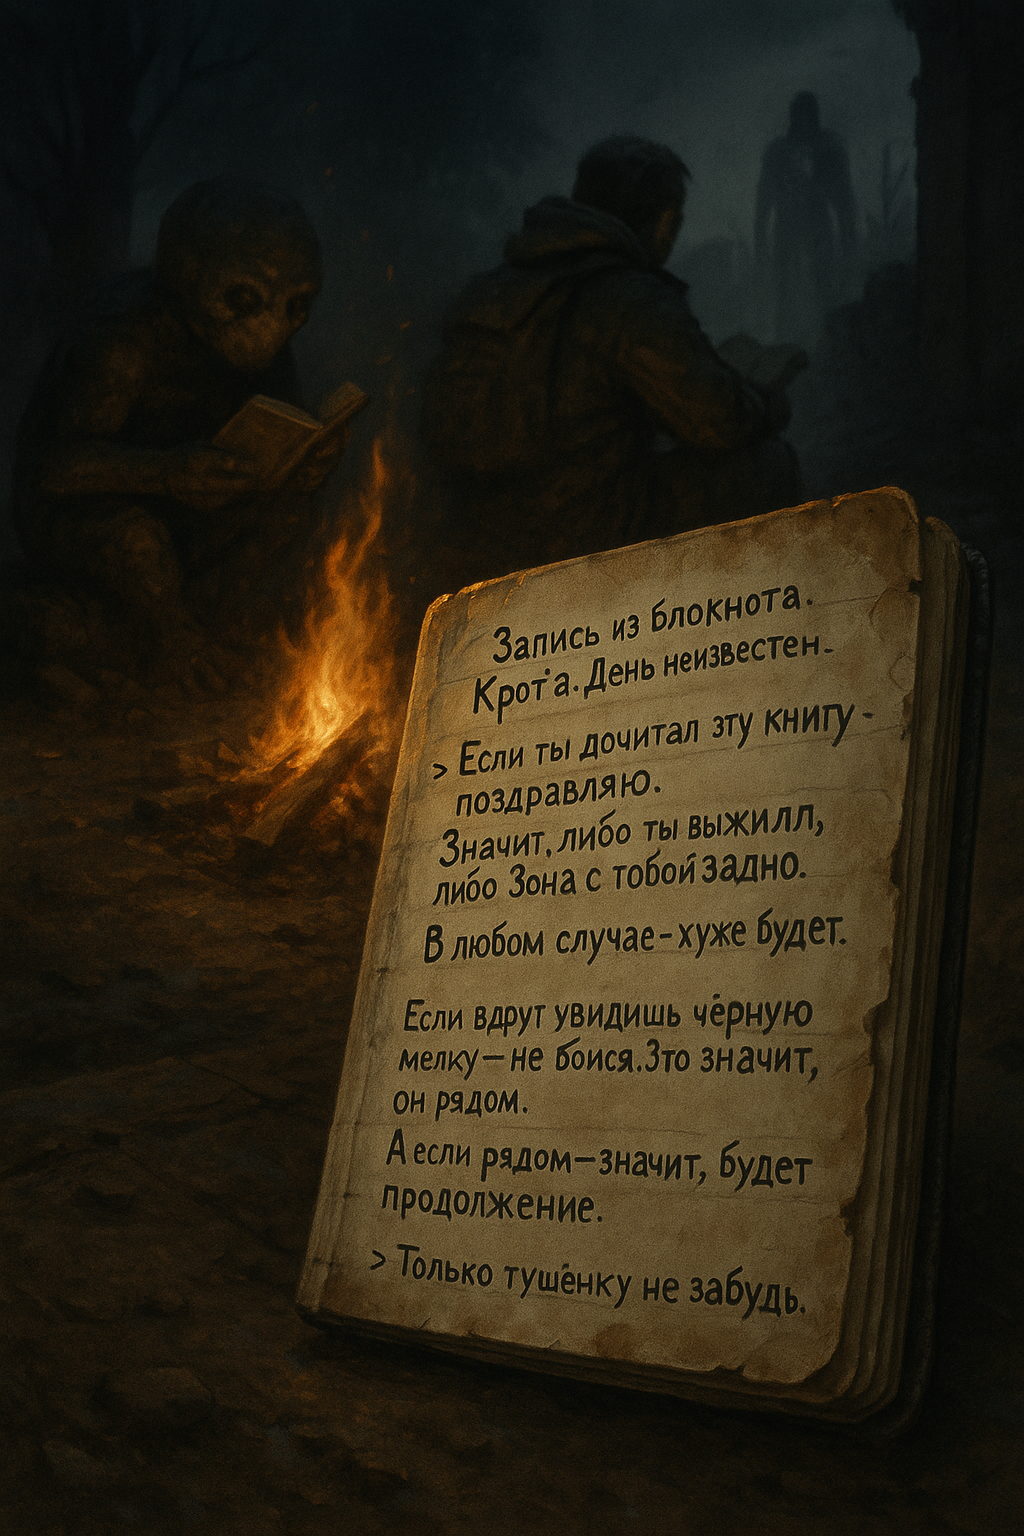 Запись из блокнота.
Крот'а. День неизвестен.
> Если ты дочитал зту книгу -
поздравляю.
Значит, либо ты выжилл,
либо Зона с тобой задно.
В любом случае – хуже будет.
Если вдрут увидишь чёрную
мелку — не боися. Зто значит,
он рядом.
А если рядом — значит, будет
продолжение.
> Только тушёнку не забудь.